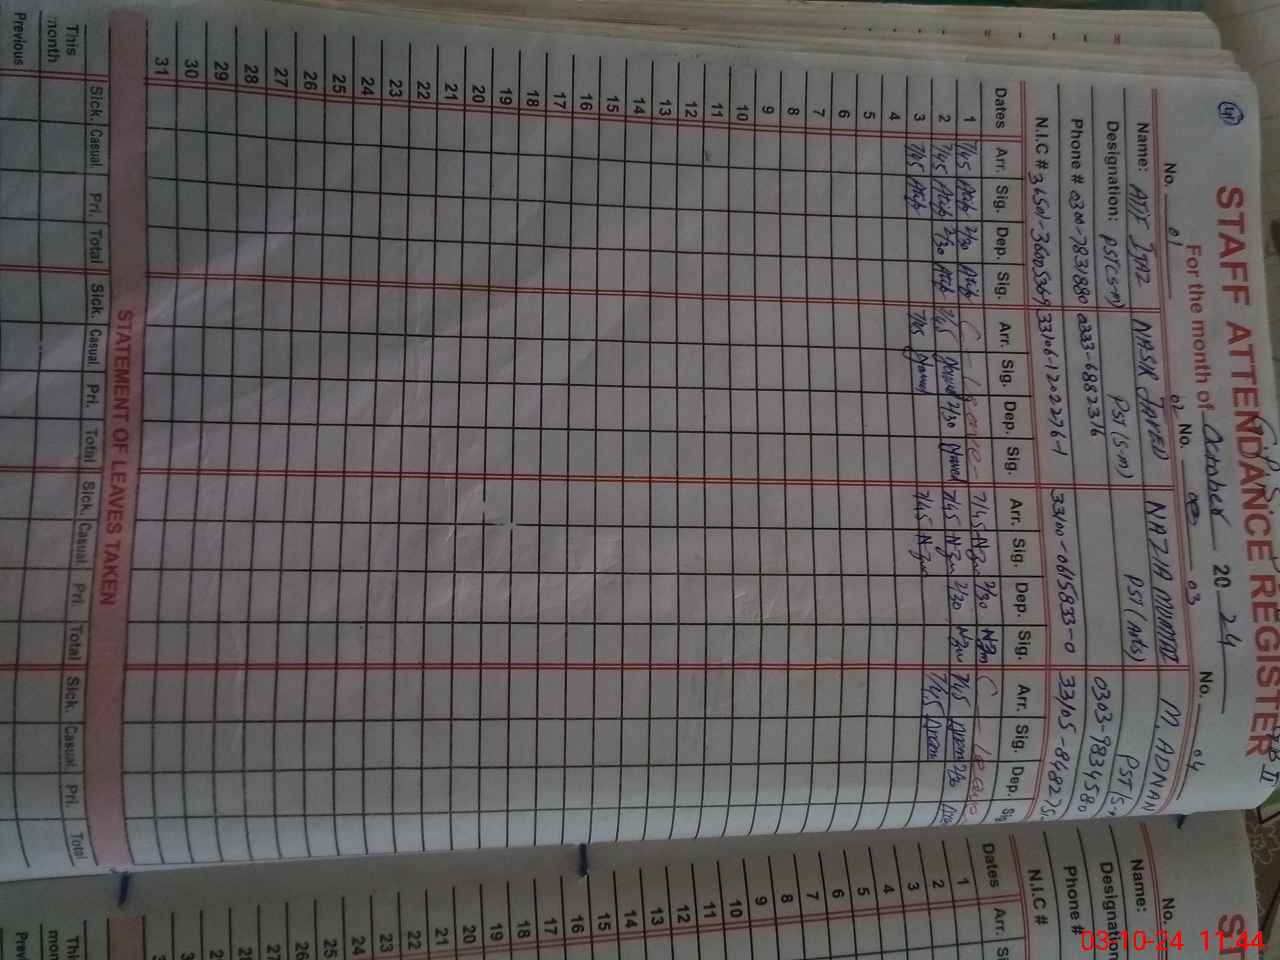 STAFF ATTENDANCE REGISTER
For the month of October 2024
No. 01 No. 02 No. 03 No. 04
Name: ATIF IJAZ NASIR JAVED NAZIA MUMTAZ M. ADNAN
Designation: PST(S-M) PST(S-M) PST(Arts)
Phone # 0300-7831880 0333-6882316 0303-9834580
N.I.C # 36501-3600536-9 33106-1202276-1 33100-0615833-0 33105-84827
Dates Arr. Sig. Dep. Sig. Arr. Sig. Dep. Sig. Arr. Sig. Dep. Sig. Arr. Sig. Dep. Sig
1 7/45 Atif 2/30 Atif Leave 7/45 2/30 Leave
2 7/45 Atif 2/30 Atif 7/45 2/30 7/45 2/30 7/45 2/30
3 7/45 Atif 7/45 7/45 7/45
4
5
6
7
8
9
10
11
12
13
14
15
16
17
18
19
20
21
22
23
24
25
26
27
28
29
30
31
STATEMENT OF LEAVES TAKEN
Sick. Casual. Pri. Total Sick. Casual. Pri. Total Sick. Casual. Pri. Total Sick. Casual. Pri. Total
This month
Previous
No.
Name:
Designation
Phone #
N.I.C #
Dates Arr.
1
2
3
4
5
6
7
8
9
10
11
12
13
14
15
16
17
18
19
20
21
22
23
24
25
26
27
03-10-24 11:44